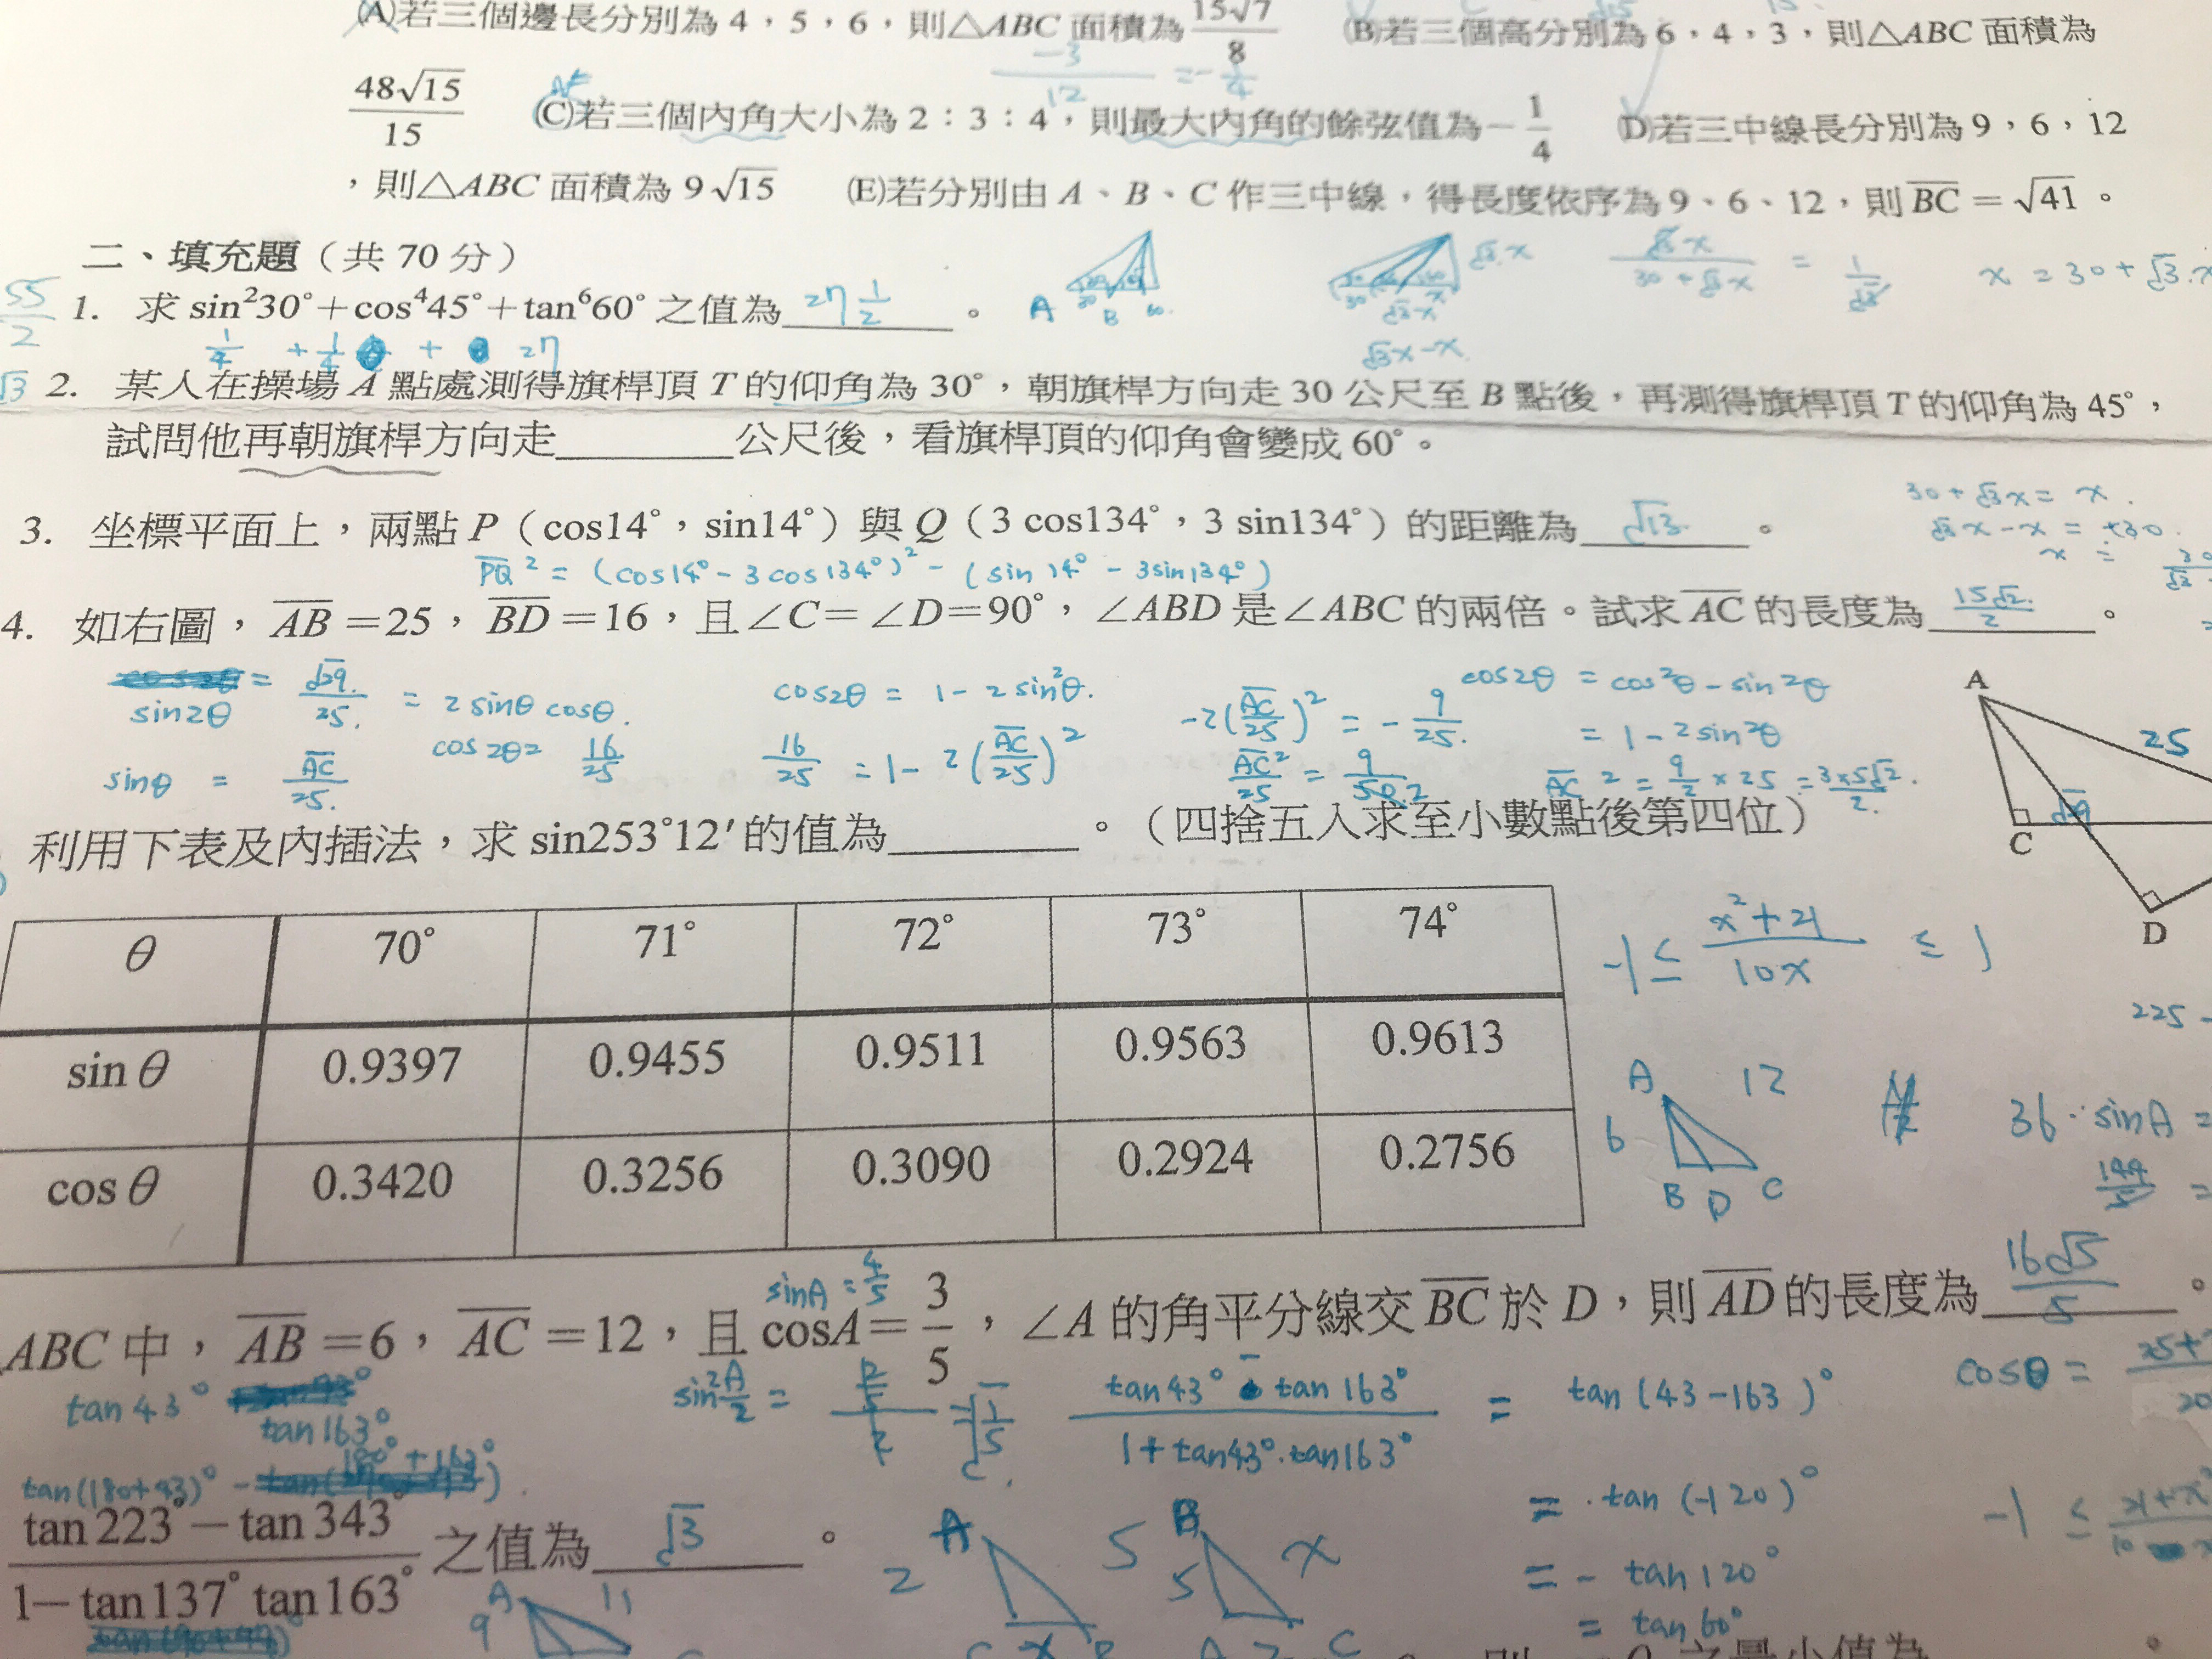 (A)若三個邊長分別為 4，5，6，則△ABC 面積為 15√7/8 (B)若三個高分別為 6，4，3，則△ABC 面積為
-3/12 = -1/4
48√15/15 (C)若三個內角大小為 2：3：4，則最大內角的餘弦值為 -1/4 (D)若三中線長分別為 9，6，12
，則△ABC 面積為 9√15 (E)若分別由 A、B、C 作三中線，得長度依序為 9、6、12，則 BC = √41。
二、填充題（共 70 分）
√3x/(30+√3x) = 1/√3
x = 30 + √3.x
55/2
1. 求 sin²30°＋cos⁴45°＋tan⁶60° 之值為 27 1/2 。
A B
√3x-x
1/4 + 1/4 + 27
√3
2. 某人在操場 A 點處測得旗桿頂 T 的仰角為 30°，朝旗桿方向走 30 公尺至 B 點後，再測得旗桿頂 T 的仰角為 45°，
試問他再朝旗桿方向走________公尺後，看旗桿頂的仰角會變成 60°。
30 + √3x = x.
√3x - x = +30.
3. 坐標平面上，兩點 P（cos14°，sin14°）與 Q（3 cos134°，3 sin134°）的距離為 √13 。
PQ² = (cos14° - 3cos134°)² - (sin14° - 3sin134°)
4. 如右圖，AB＝25，BD＝16，且∠C＝∠D＝90°，∠ABD 是∠ABC 的兩倍。試求 AC 的長度為 15√2/2 。
sin2θ = √29/25. = 2 sinθ cosθ.
cos2θ = 16/25
sinθ = AC/25.
cos2θ = 1 - 2 sin²θ.
16/25 = 1 - 2(AC/25)²
-2(AC/25)² = -9/25.
cos2θ = cos²θ - sin²θ
= 1 - 2sin²θ
AC² = 9/2 × 25 = 3×5√2/2.
A
25
C
D
利用下表及內插法，求 sin253°12′的值為________。（四捨五入求至小數點後第四位）
θ 70° 71° 72° 73° 74°
sin θ 0.9397 0.9455 0.9511 0.9563 0.9613
cos θ 0.3420 0.3256 0.3090 0.2924 0.2756
-1 ≤ (x²+21)/10x ≤ 1
225 -
A 12
6
B D C
36 · sinA =
144/5 =
sinA = 4/5
ABC 中，AB＝6，AC＝12，且 cosA＝3/5，∠A 的角平分線交 BC 於 D，則 AD 的長度為 16√5/5 。
tan43°
tan163°
(tan43° - tan163°)/(1+tan43°·tan163°) = tan(43-163)°
cosθ =
tan(180+43)° -
= tan(-120)°
(tan 223°－tan 343°)/(1－tan137° tan163°) 之值為 √3 。
= -tan120°
= tan60°
A 2 5
B 5 x
A 9 11
之最小值為